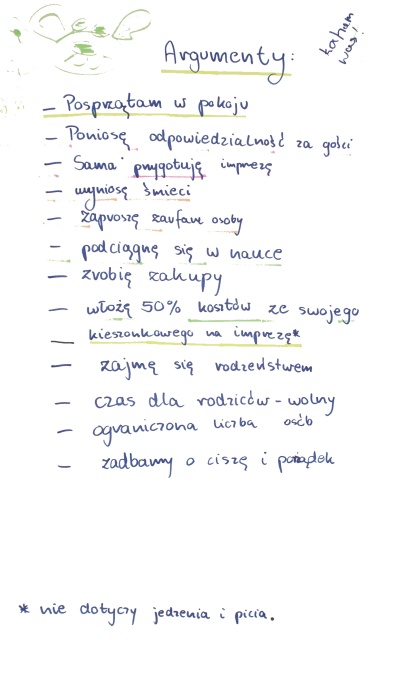 Argumenty:
kaham was!
— Posprzątam w pokoju
— Poniosę odpowiedzialność za gości
— Sama przygotuję imprezę
— wyniosę śmieci
— zaproszę zaufane osoby
— podciągnę się w nauce
— zrobię zakupy
— włożę 50% kosztów ze swojego
— kieszonkowego na imprezę*
— zajmę się rodzeństwem
— czas dla rodziców - wolny
— ograniczona liczba osób
— zadbamy o ciszę i porządek
* nie dotyczy jedzenia i picia.